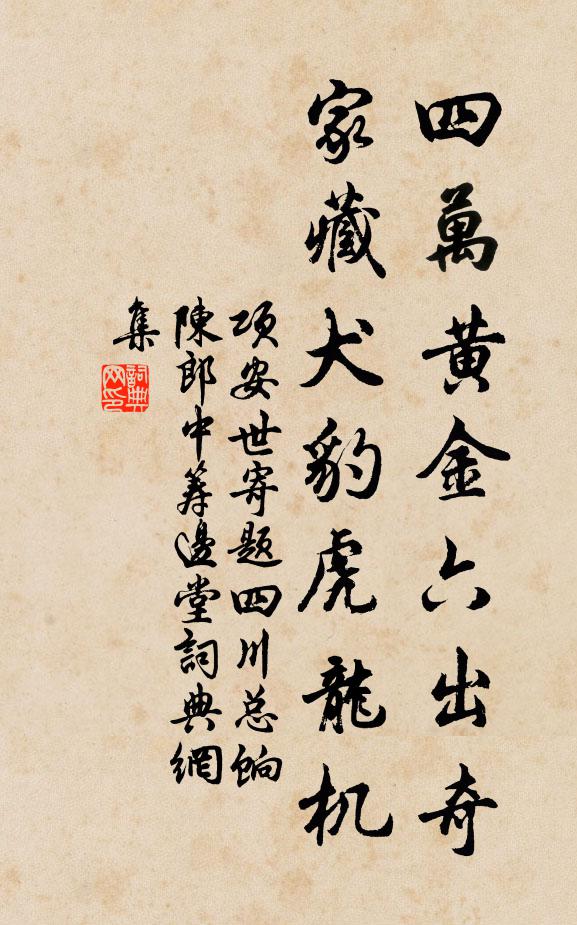 四萬黃金六出奇
家藏犬豹虎龍机
项安世寄题四川总餉
陳郎中筹邊堂詞典網
集
詞典
网印